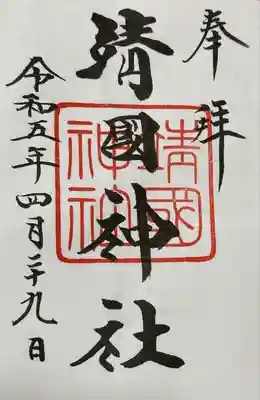 奉拝
靖國神社
靖國神社
令和五年四月二十九日